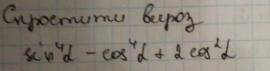 Спростити вираз
sin⁴α - cos⁴α + 2cos²α